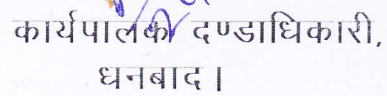 कार्यपालकी दण्डाधिकारी,
धनबाद।